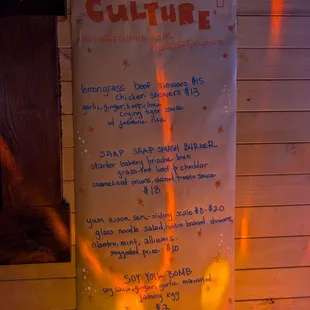 CULTURE
lemongrass beef skewers $15
chicken skewers $13
garlic, ginger,
crying tiger sauce
w/ jasmine rice
SAAP SAAP SMASH BURGER
starter bakery brioche bun
grass-fed beef & cheddar
caramelized onions, tomato sauce
$18
yum woon sen - sliding scale $0-$20
glass noodle salad,
cilantro, mint, alliums.
suggested price - $10
SOY YOLK BOMB
soy sauce, ginger, garlic marinated
jammy egg
$2